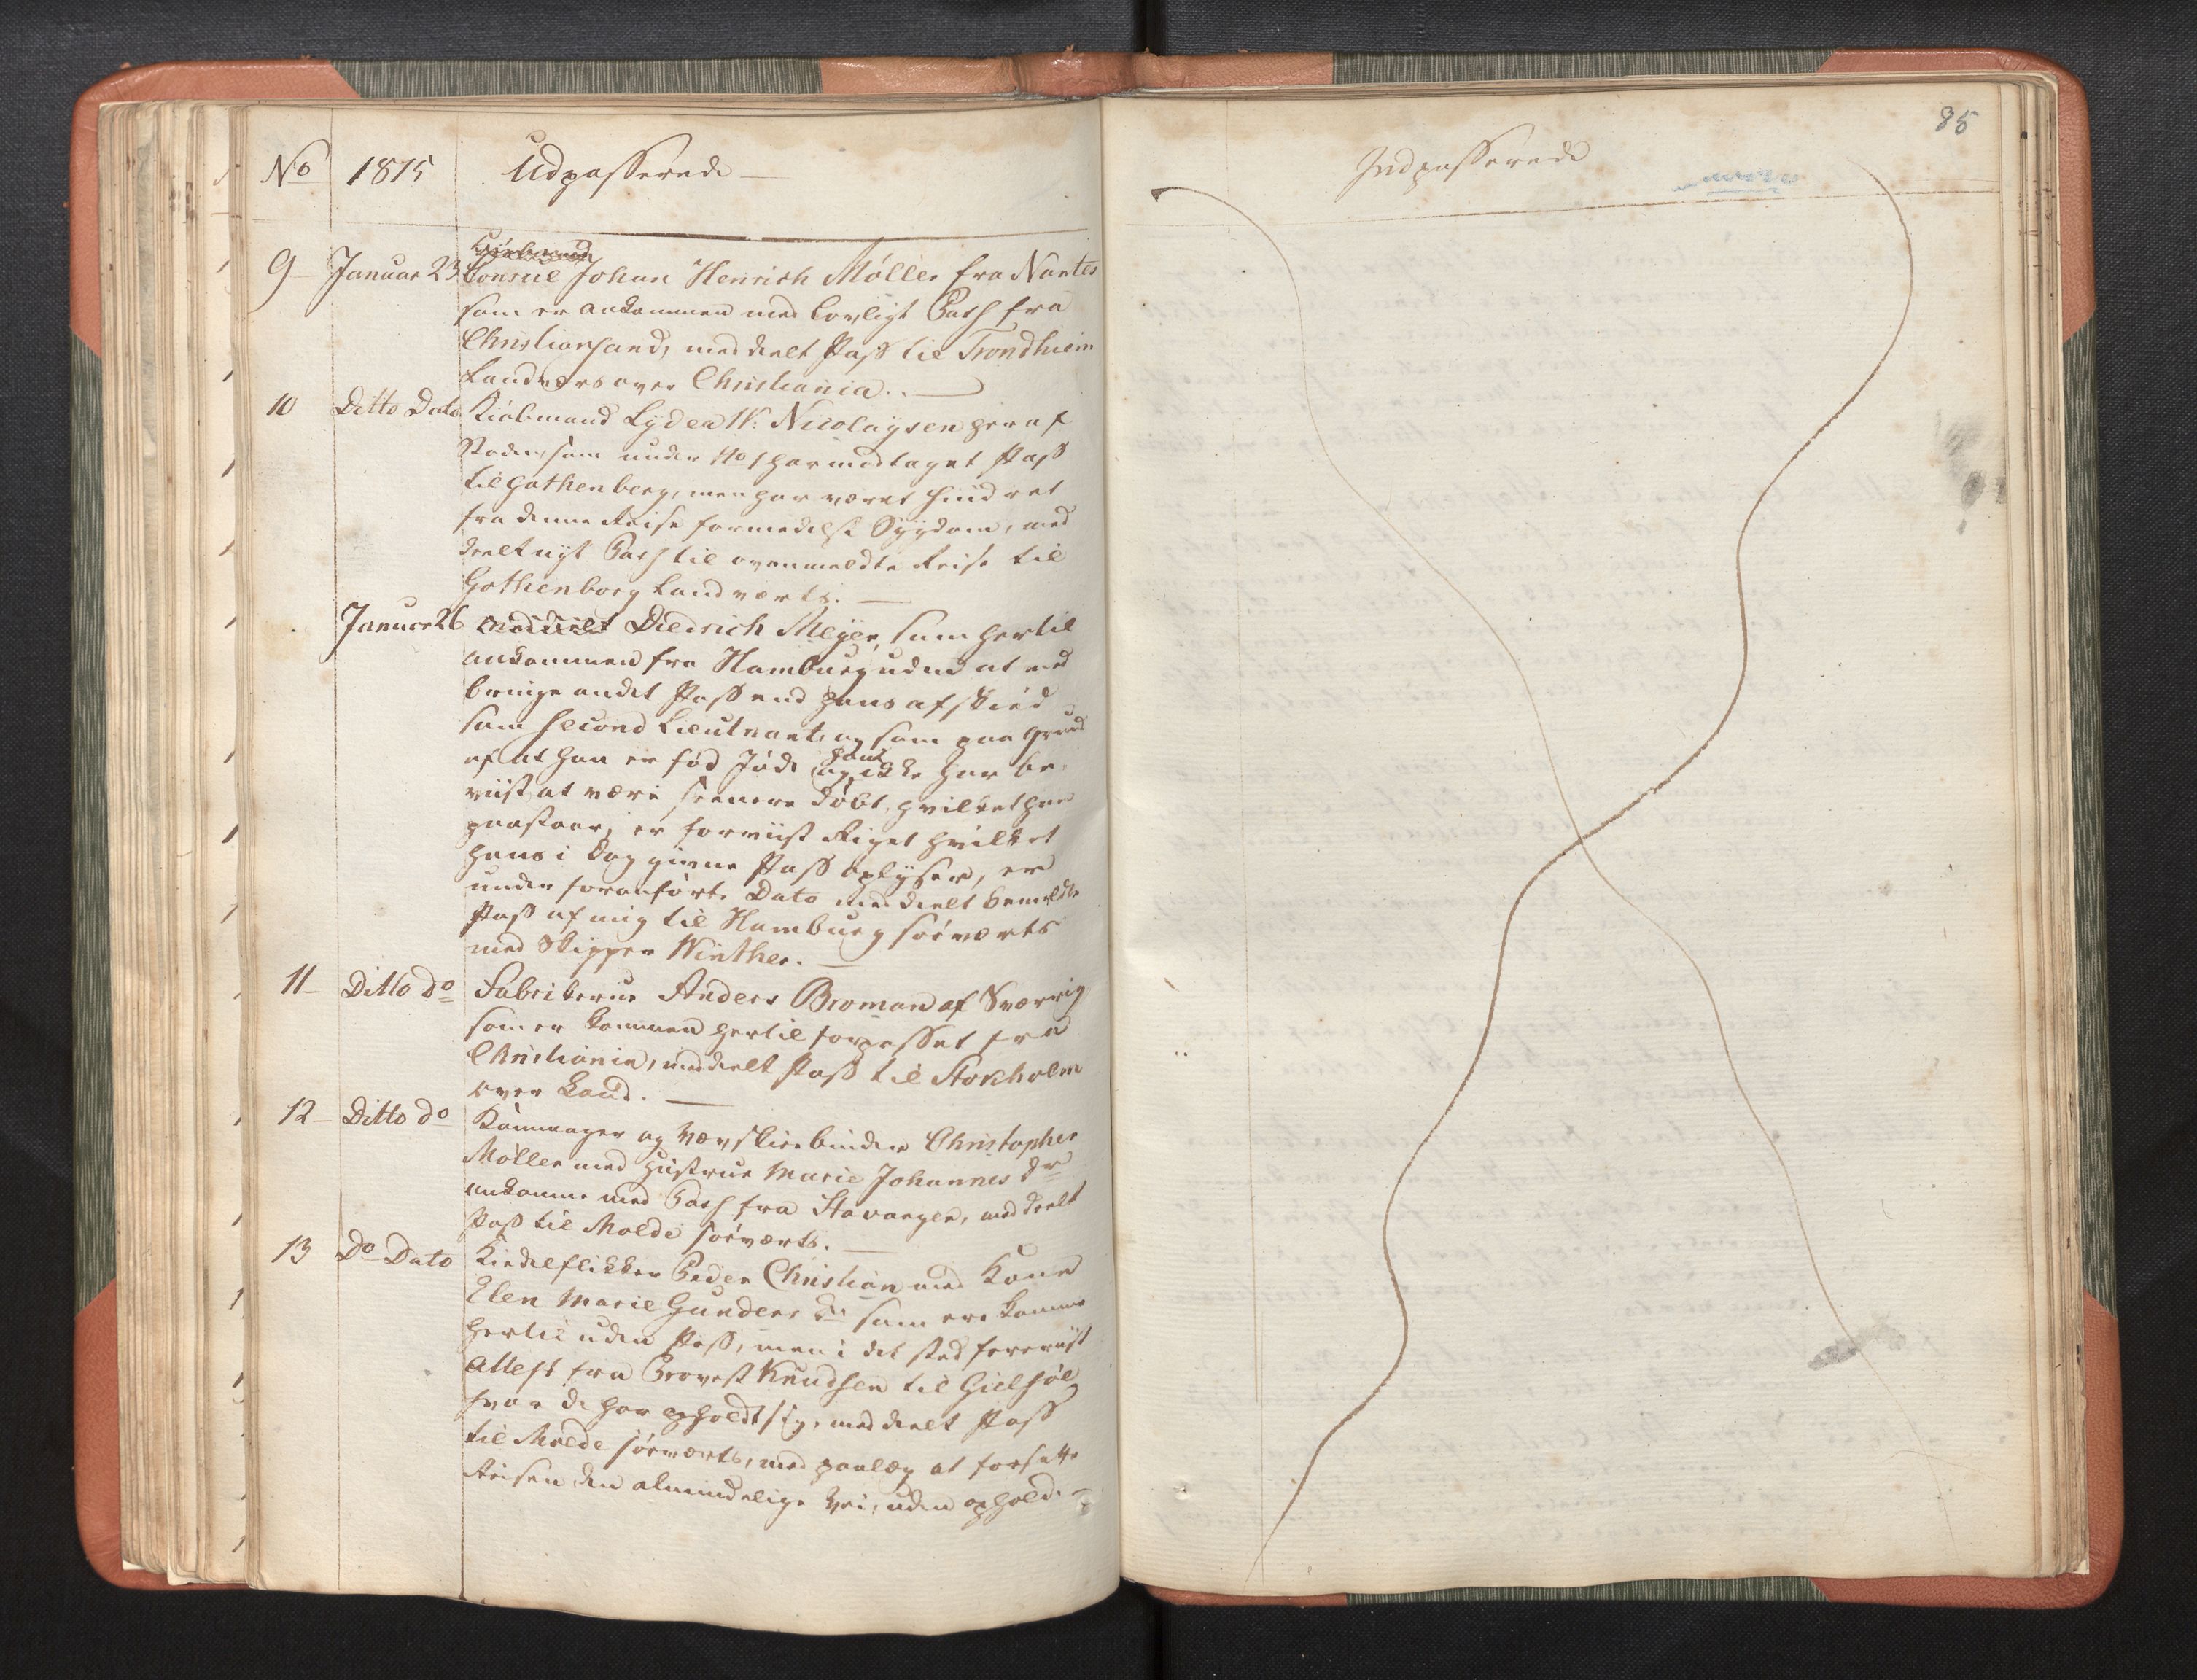 No 1815 Udpasserede
9 Januar 23 Kiøbmand
Consul Johan Henrich Møller fra Nantes
som er ankommen med lovligt Pass fra
Christiansand, meddeelt Pass til Trondhiem
Landværts over Christiania.
10 Ditto Dato Kiøbmand Lyder W: Nicolaysen her af
Staden, som under No 1 har modtaget Pass
til Gothenborg, men har været hindret
fra denne Reise formedelst Sygdom, med
deelt nyt Pass til ovenmeldte Reise til
Gothenborg Landværts.
Januar 26 meddeelt Diedrich Meyer, som hertil
ankommen fra Hamburg uden at med
bringe andet Pass end hans afskeed
som Second Lieutnant, og som paa Grund
af at han er fød Jøde og ikke har be
viist at være senere døbt, hvilket han
paastaar, er forviist Riget hvilket
hans i Dag givne Pass oplyser, er
under foranførte Dato meddeelt bemeldte
Pass af mig til Hamburg søeværts
med Skipper Winther.
11 Ditto do Fabrikeur Anders Broman af Sverrig
som er kommen hertil forpasset fra
Christiania, meddeelt Pass til Stokholm
over Land.
12 Ditto do Kammager og Vævskeebinder Christopher
Møller med Hustrue Marie Johannes dr
ankomne med Pass fra Stavanger, meddeelt
Pass til Molde søeværts.
13 Do Dato Kiedelflikker Peder Christian med Kone
Elen Marie Gunders dr som ere komne
hertil uden Pass, men i det sted foreviist
Attest fra Provst Knudsen til
hvor de har opholdt sig, meddeelt Pass
til Molde søeværts, med paalæg at forsætte
Reisen den almindelige Vei, uden ophold.
85
Indpasserede